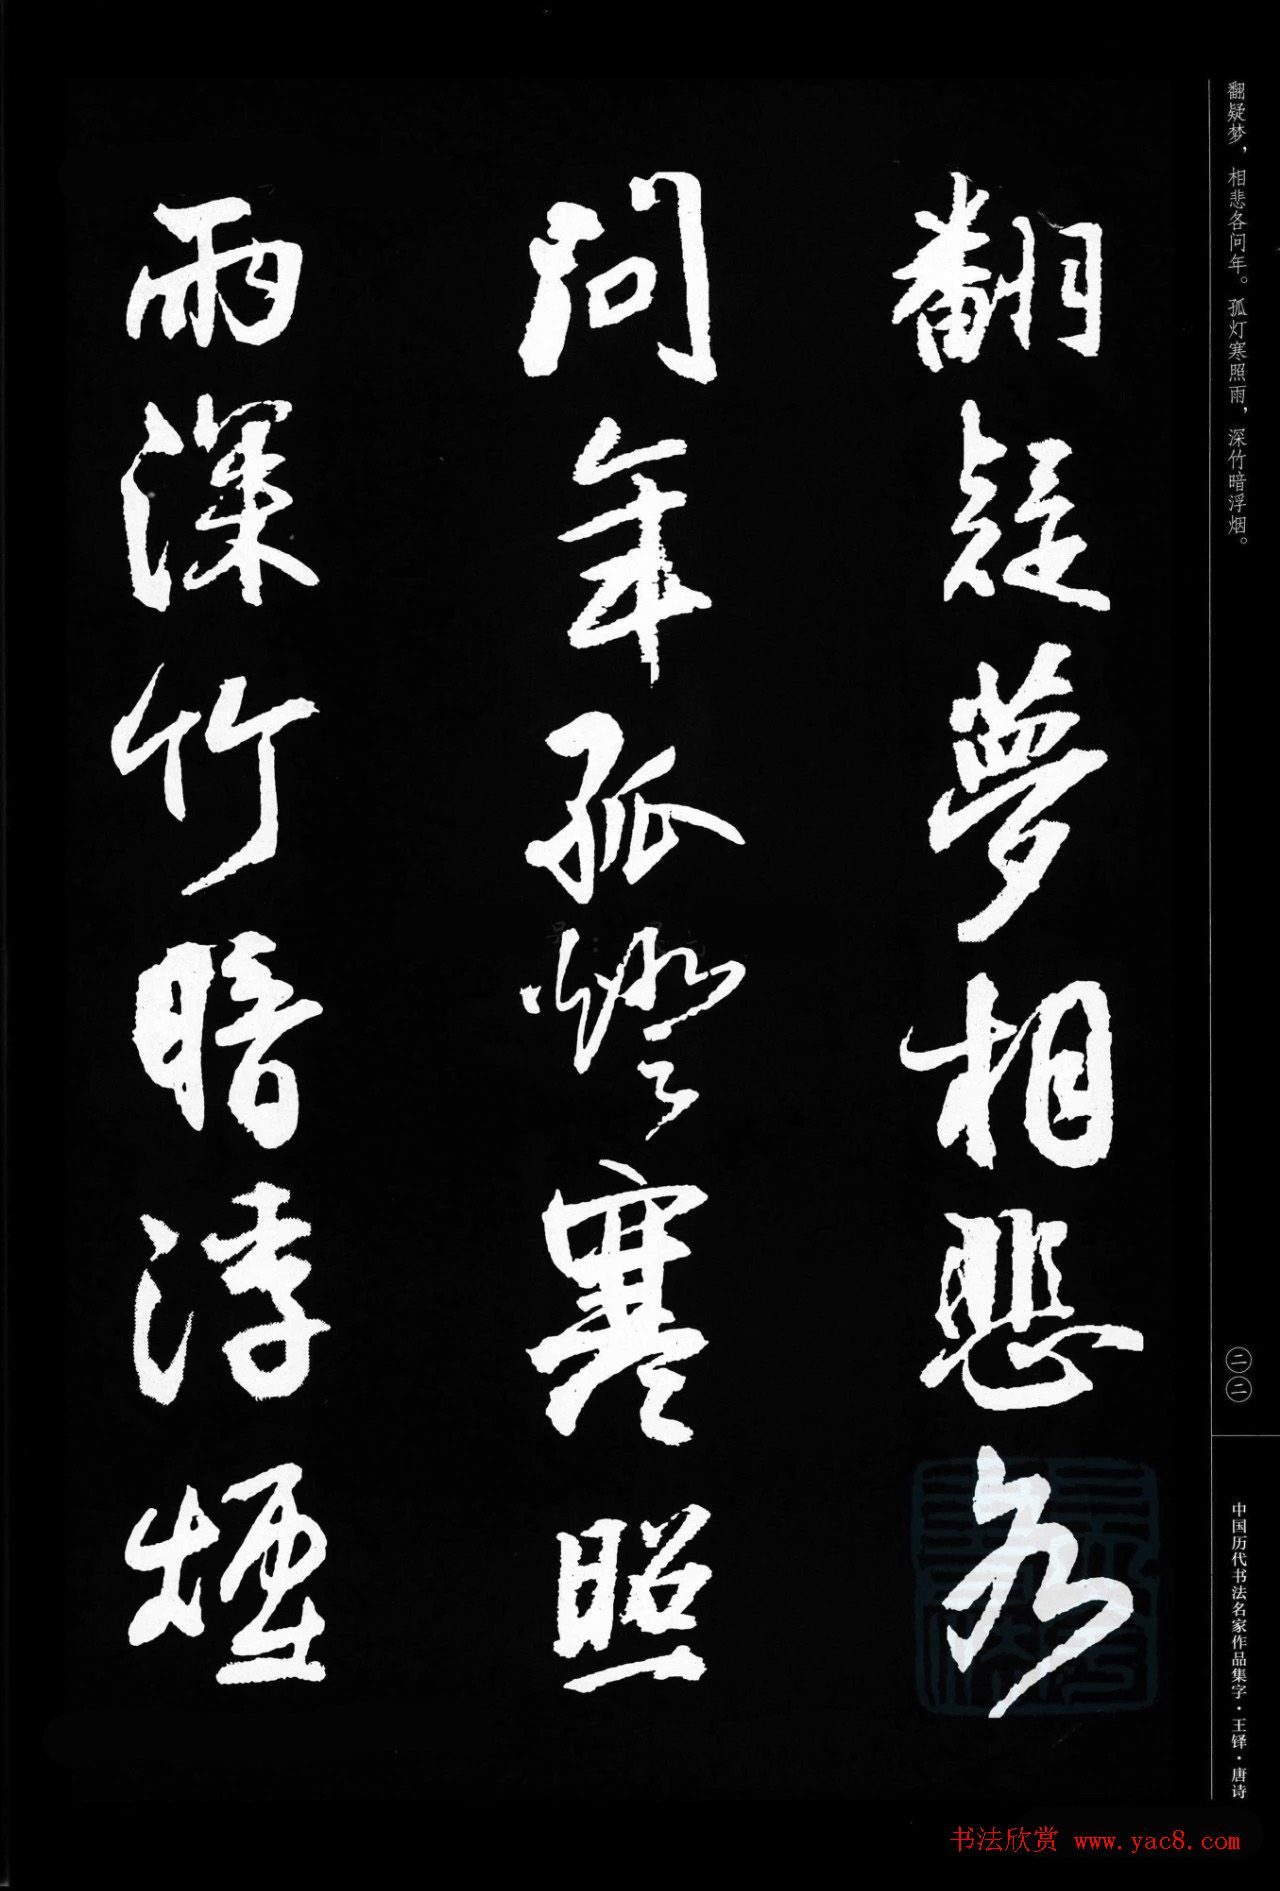 翻疑梦，相悲各问年。孤灯寒照雨，深竹暗浮烟。
翻疑夢相悲各
問年孤燈寒照
雨深竹暗浮煙
二二
中国历代书法名家作品集字·王铎·唐诗
书法欣赏 www.yac8.com